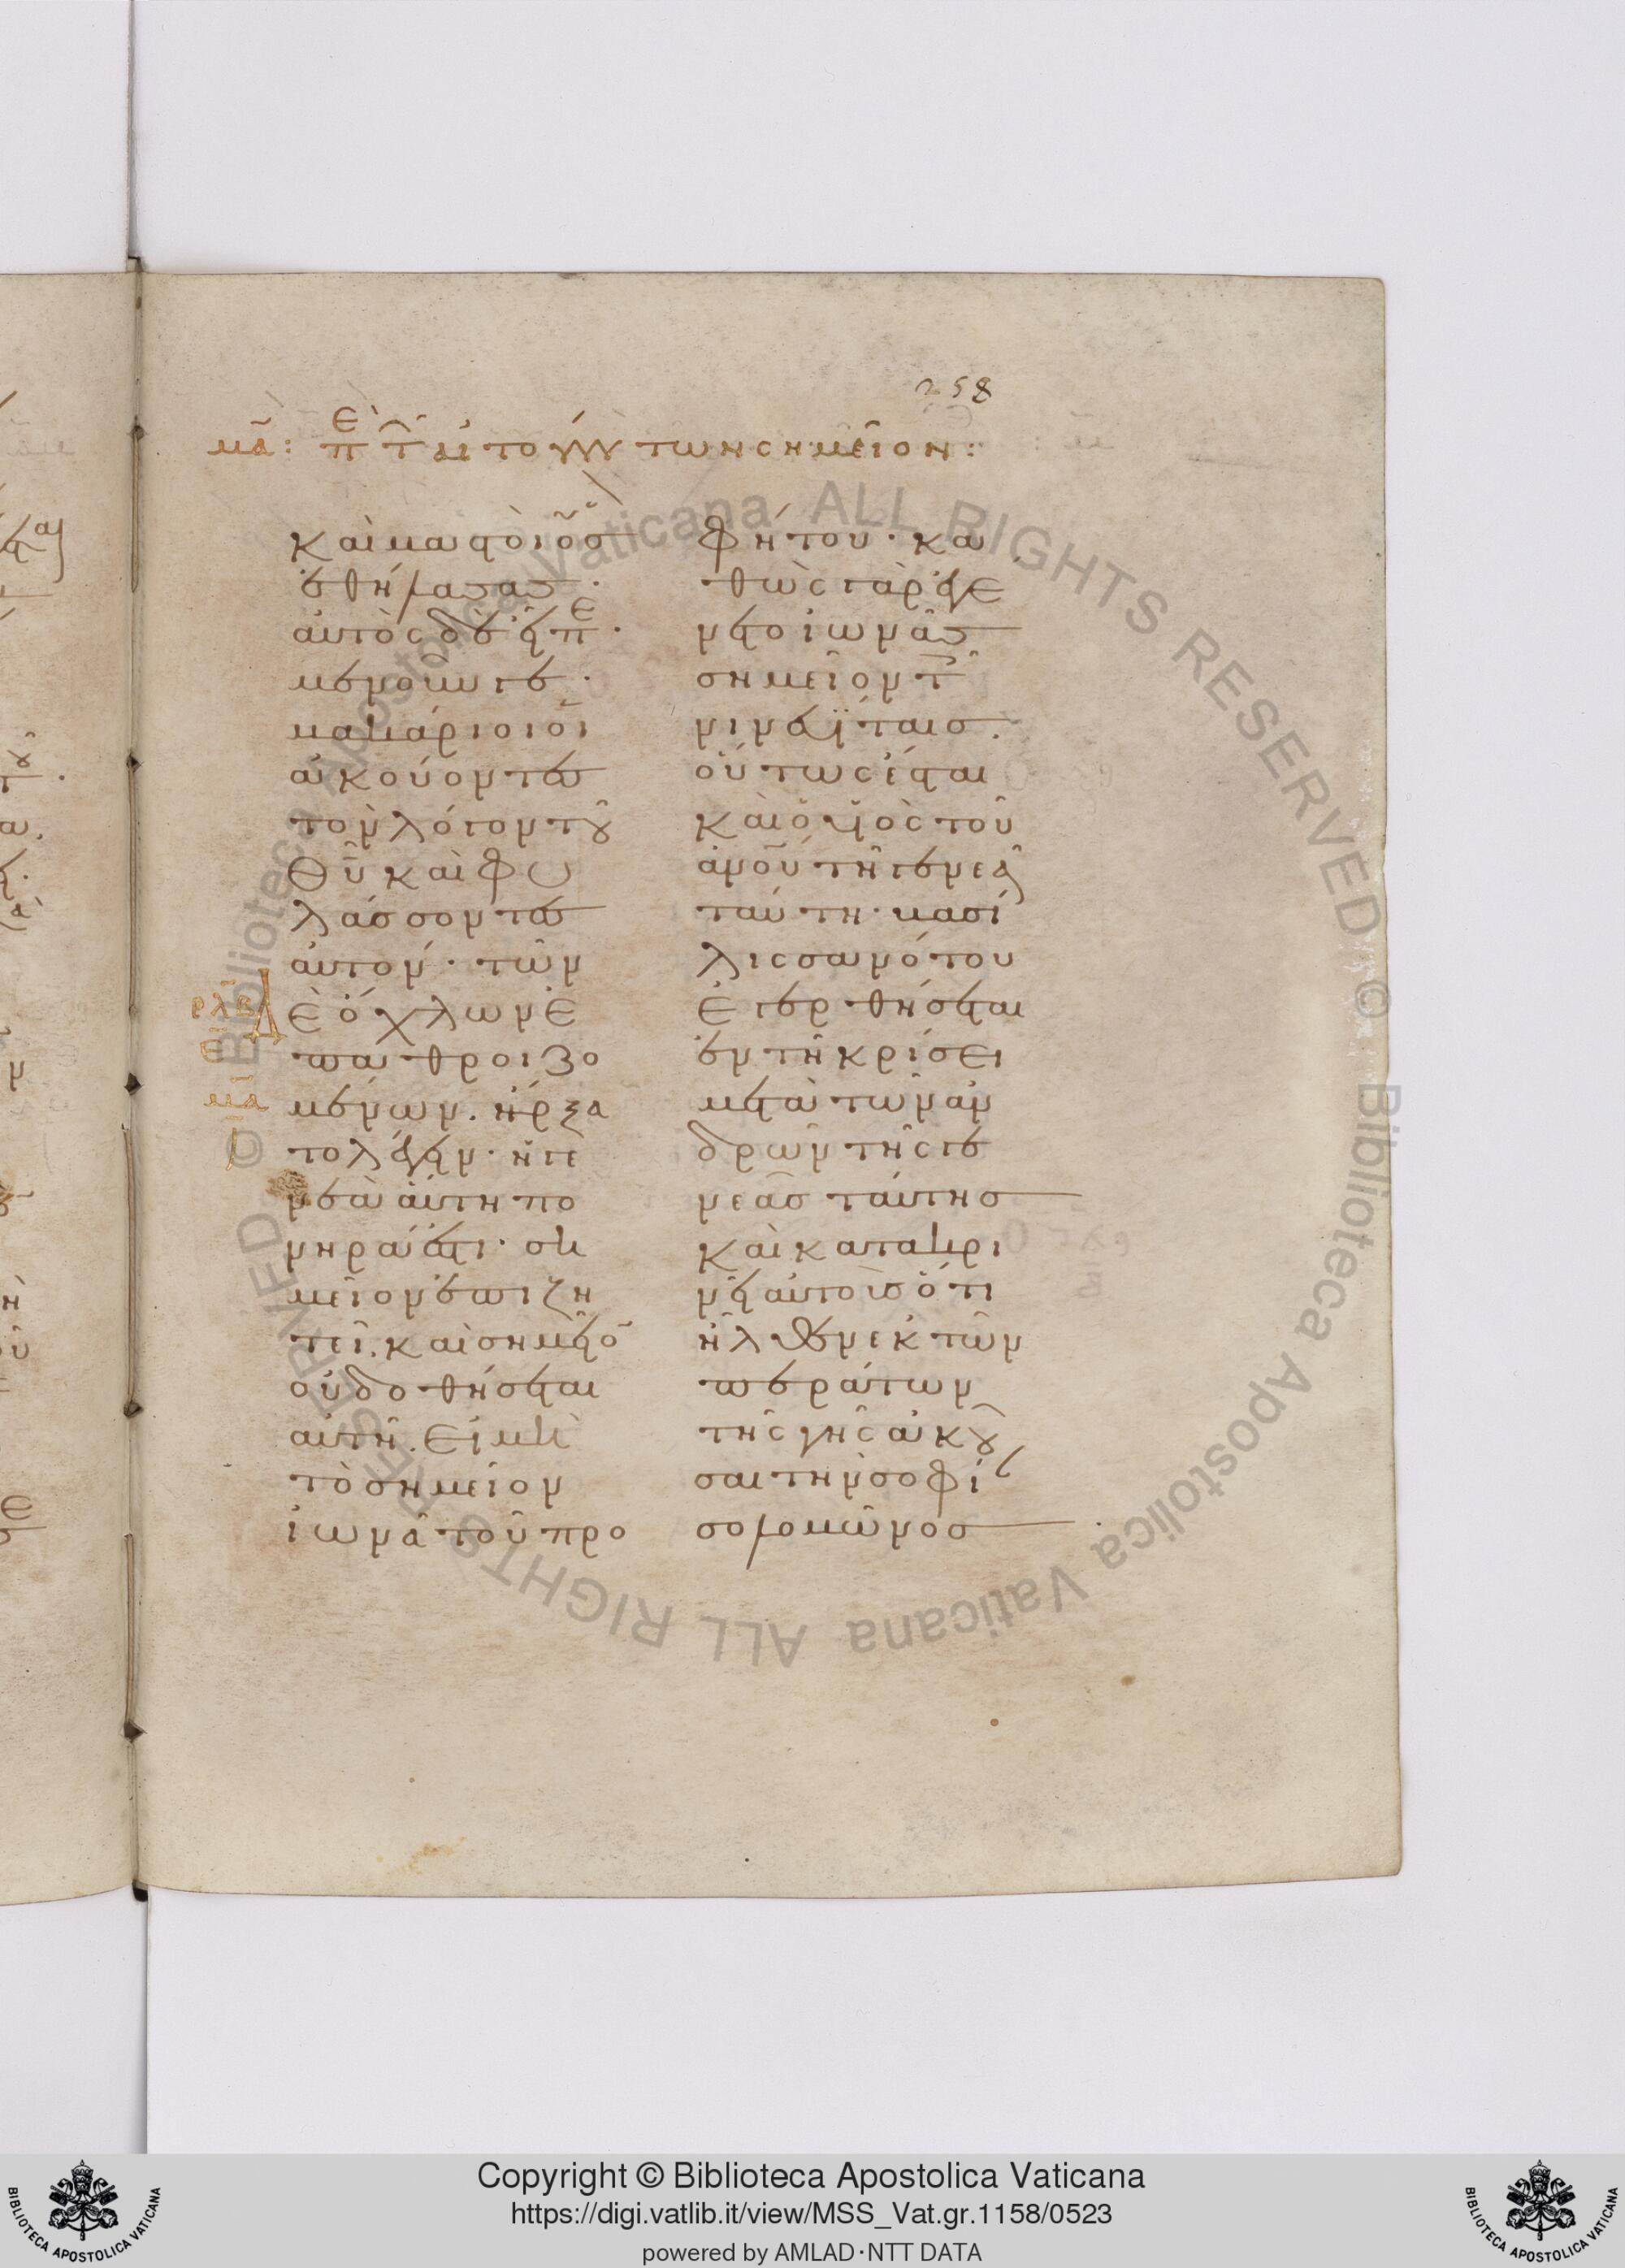 258
μα: περὶ τῶν αἰτούντων σημεῖον:
καὶ μαστοὶ οὓς
ἐθήλασας·
αὐτὸς δὲ εἶπε·
μενοῦνγε·
μακάριοι οἱ
ἀκούοντες
τὸν λόγον τοῦ
θῦ καὶ φυ
λάσσοντες
αὐτόν· τῶν
ρλβ
δὲ ὄχλων ἐ
παθροιζο
μα
μένων. ἤρξα
το λέγειν· ἡ γε
νεὰ αὕτη πο
νηρά ἐστι· ση
μεῖον ἐπιζη
τεῖ. καὶ σημεῖον
οὐ δοθήσεται
αὐτῇ. εἰ μὴ
τὸ σημεῖον
ἰωνᾶ τοῦ προ
φήτου· κα
θὼς γὰρ ἐγέ
νετο ἰωνᾶς
σημεῖον τοῖς
νινευΐταις.
οὕτως ἔσται
καὶ ὁ υἱὸς τοῦ
ἀνου τῇ γενεᾷ
ταύτῃ· βασί
λισσα νότου
ἐγερθήσεται
ἐν τῇ κρίσει
μετὰ τῶν ἀν
δρῶν τῆς γε
νεᾶς ταύτης
καὶ κατακρι
νεῖ αὐτούς ὅτι
ἦλθεν ἐκ τῶν
περάτων
τῆς γῆς ἀκοῦ
σαι τὴν σοφί
σολομῶνος
Biblioteca Apostolica Vaticana ALL RIGHTS RESERVED © Biblioteca Apostolica Vaticana ALL RIGHTS RESERVED ©
Copyright © Biblioteca Apostolica Vaticana
https://digi.vatlib.it/view/MSS_Vat.gr.1158/0523
powered by AMLAD·NTT DATA
BIBLIOTECA APOSTOLICA VATICANA
BIBLIOTECA APOSTOLICA VATICANA